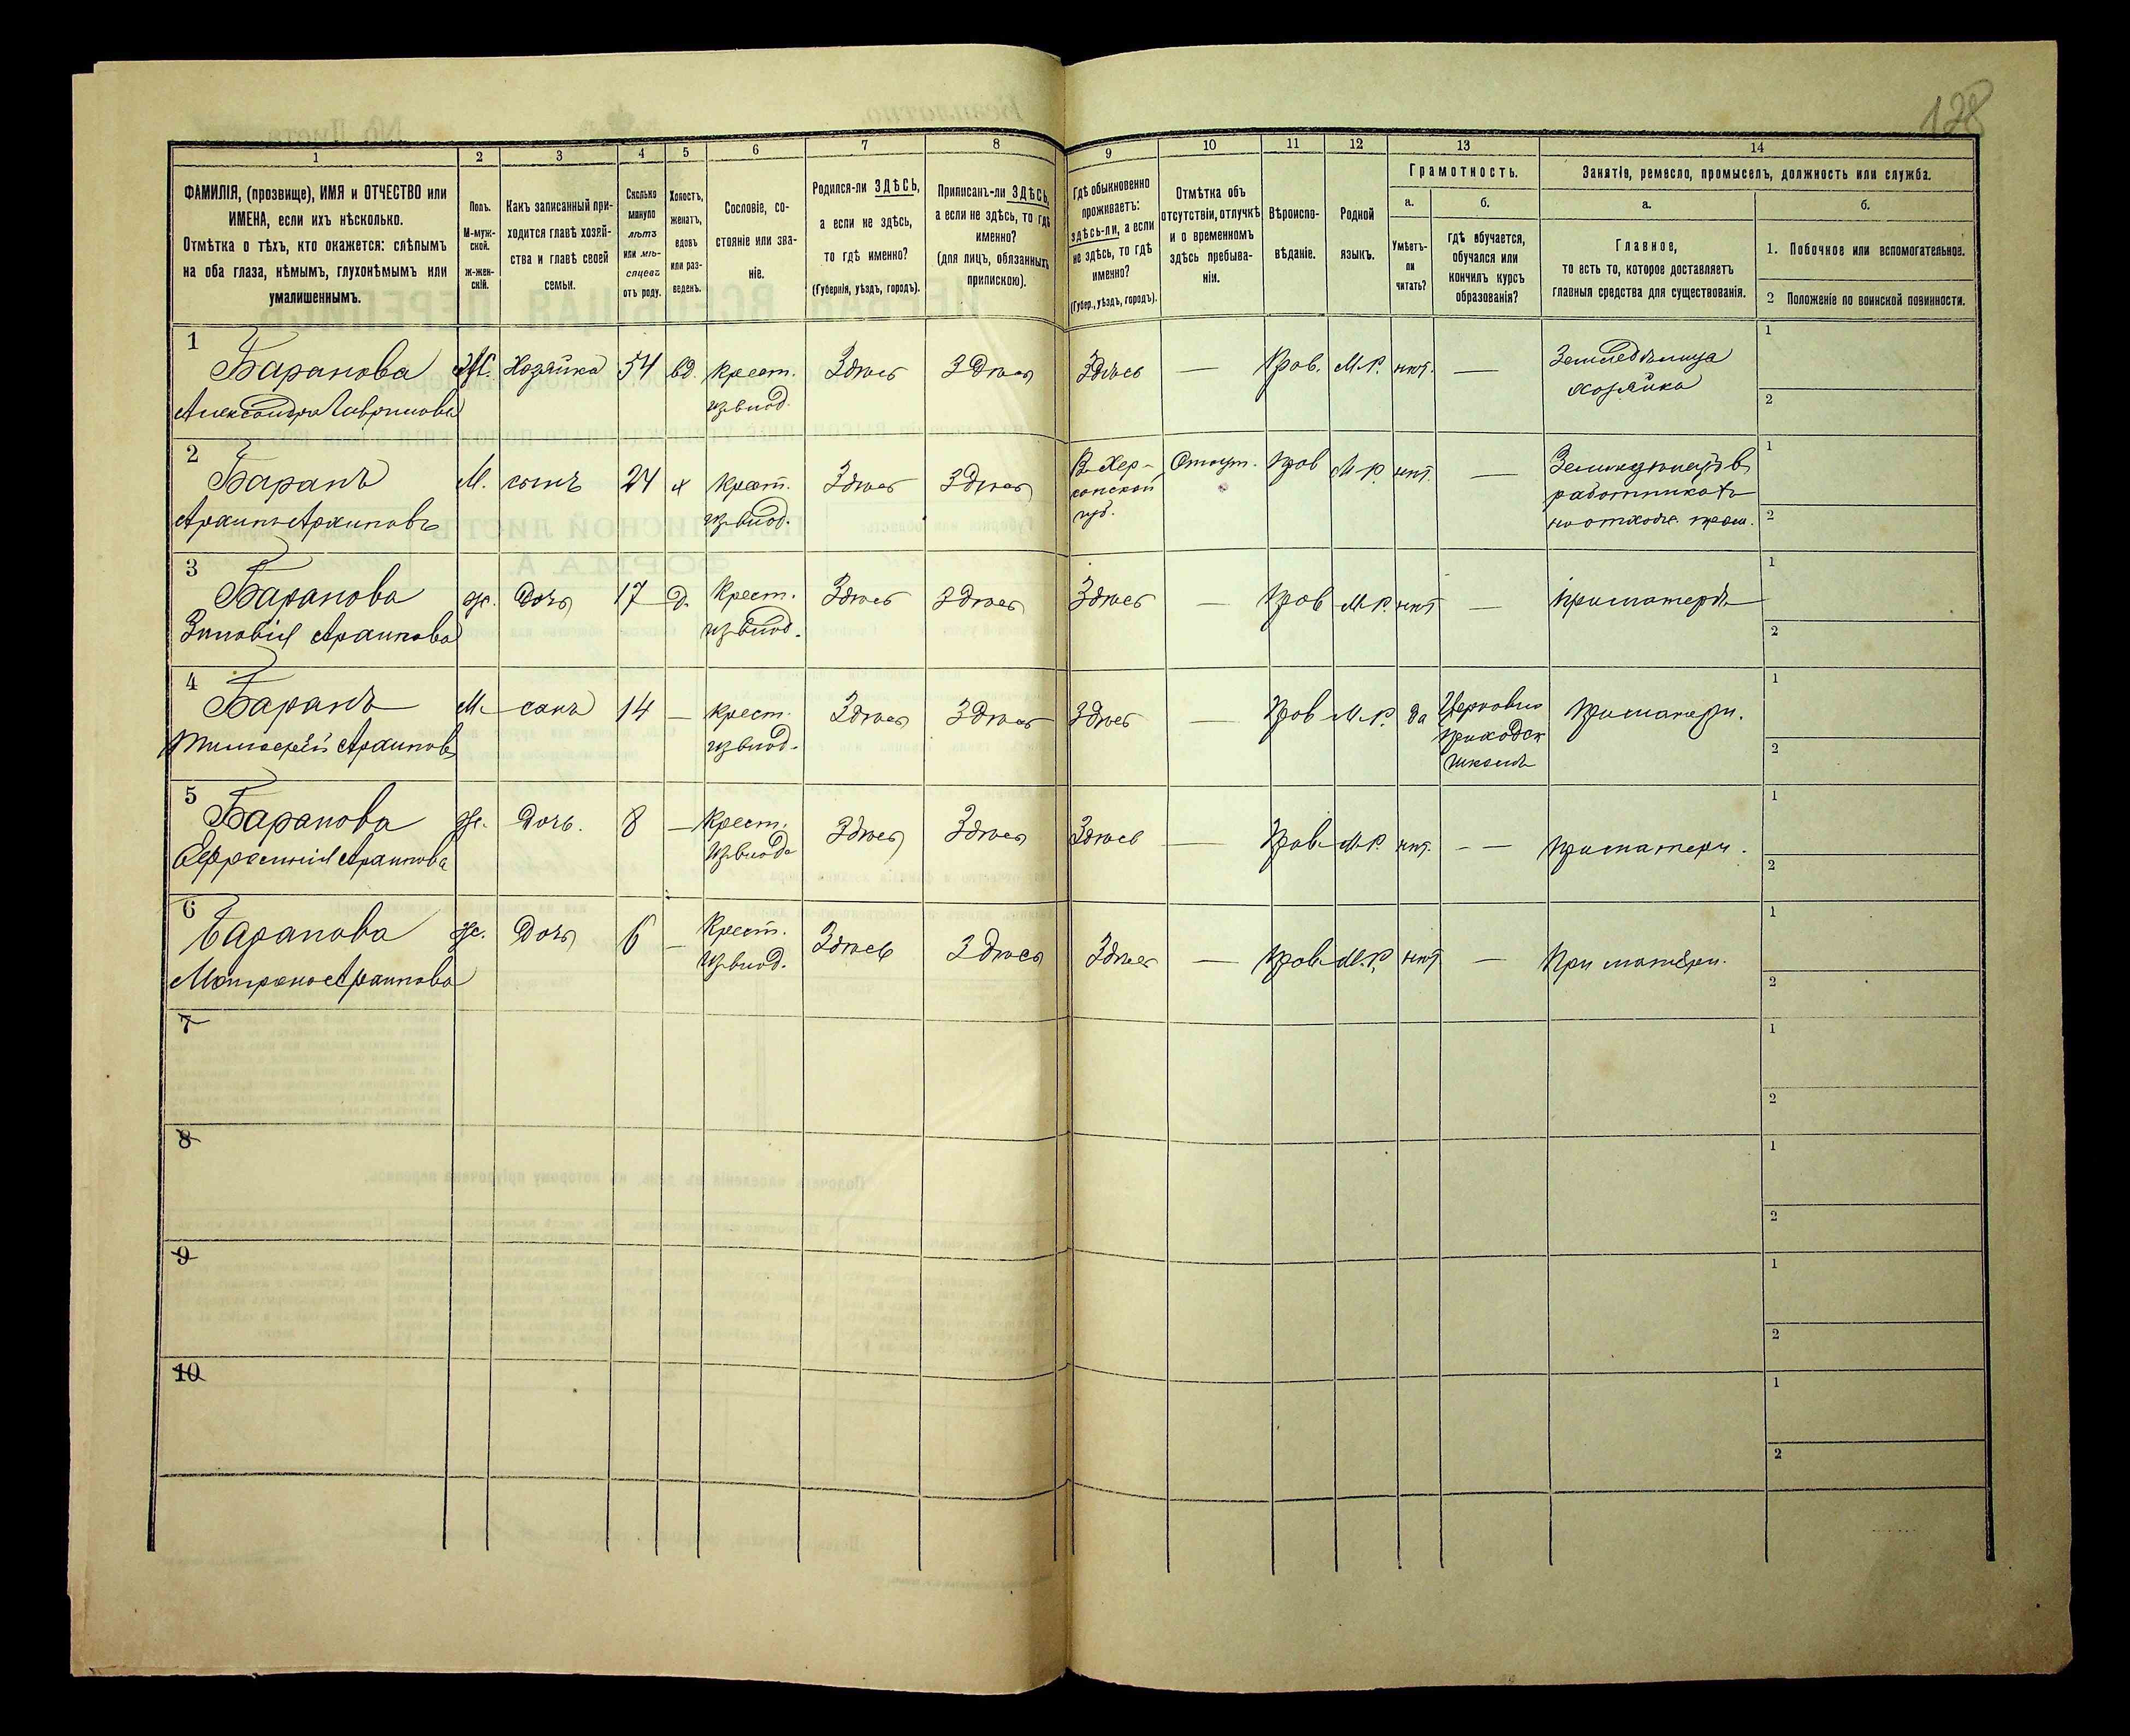 128
1 2 3 4 5 6 7 8 9 10 11 12 13 14
ФАМИЛІЯ, (прозвище), ИМЯ и ОТЧЕСТВО или
ИМЕНА, если ихъ нѣсколько.
Отмѣтка о тѣхъ, кто окажется: слѣпымъ
на оба глаза, нѣмымъ, глухонѣмымъ или
умалишеннымъ.
Полъ.
М-муж-
ской.
ж-жен-
скій.
Какъ записанный при-
ходится главѣ хозяй-
ства и главѣ своей
семьи.
Сколько
минуло
лѣтъ
или мѣ-
сяцевъ
отъ роду.
Холостъ,
женатъ,
вдовъ
или раз-
веденъ.
Сословіе, со-
стояніе или зва-
ніе.
Родился-ли ЗДѢСЬ,
а если не здѣсь,
то гдѣ именно?
(Губернія, уѣздъ, городъ).
Приписанъ-ли ЗДѢСЬ,
а если не здѣсь, то гдѣ
именно?
(для лицъ, обязанныхъ
припискою).
Гдѣ обыкновенно
проживаетъ:
здѣсь-ли, а если
не здѣсь, то гдѣ
именно?
(Губер., уѣздъ, городъ).
Отмѣтка объ
отсутствіи, отлучкѣ
и о временномъ
здѣсь пребыва-
ніи.
Вѣроиспо-
вѣданіе.
Родной
языкъ.
Грамотность.
а.
Умѣетъ-
ли
читать?
б.
гдѣ обучается,
обучался или
кончилъ курсъ
образованія?
Занятіе, ремесло, промыселъ, должность или служба.
а.
Главное,
то есть то, которое доставляетъ
главныя средства для существованія.
б.
1. Побочное или вспомогательное.
2 Положеніе по воинской повинности.
1
Баранова Ж. Хозяйка 54 вд. крест. Здѣсь Здѣсь Здѣсь — Прав. М.Р. нѣт. — Земледѣлица 1
Александра Гаврилова из влад. хозяйка 2
2
Баранъ М. сынъ 24 х крест. Здѣсь Здѣсь В Хер- Отсут. Прав М.Р. нѣт. — 1
Архипъ Архиповъ из влад. сонской работникъ 2
губ.
3
Баранова ж. Дочь 17 д. Крест. Здѣсь Здѣсь Здѣсь — Прав М.Р. нѣт — При матери 1
Зиновія Архипова из влад. 2
4
Баранъ М. сынъ 14 — крест. Здѣсь Здѣсь Здѣсь — Прав М.Р. да Церковно При матери. 1
Тимофей Архипов из влад. приходск 2
школѣ
5
Баранова ж. Дочь. 8 — Крест. Здѣсь Здѣсь Здѣсь — Прав М.Р. нѣт. — — При матери. 1
Ефросинія Архипова из влад. 2
6
Баранова ж. Дочь 6 — Крест. Здѣсь Здѣсь Здѣсь — Прав. М.Р. нѣт — При матери. 1
Матрона Архипова из влад. 2
7 1
2
8 1
2
9 1
2
10 1
2